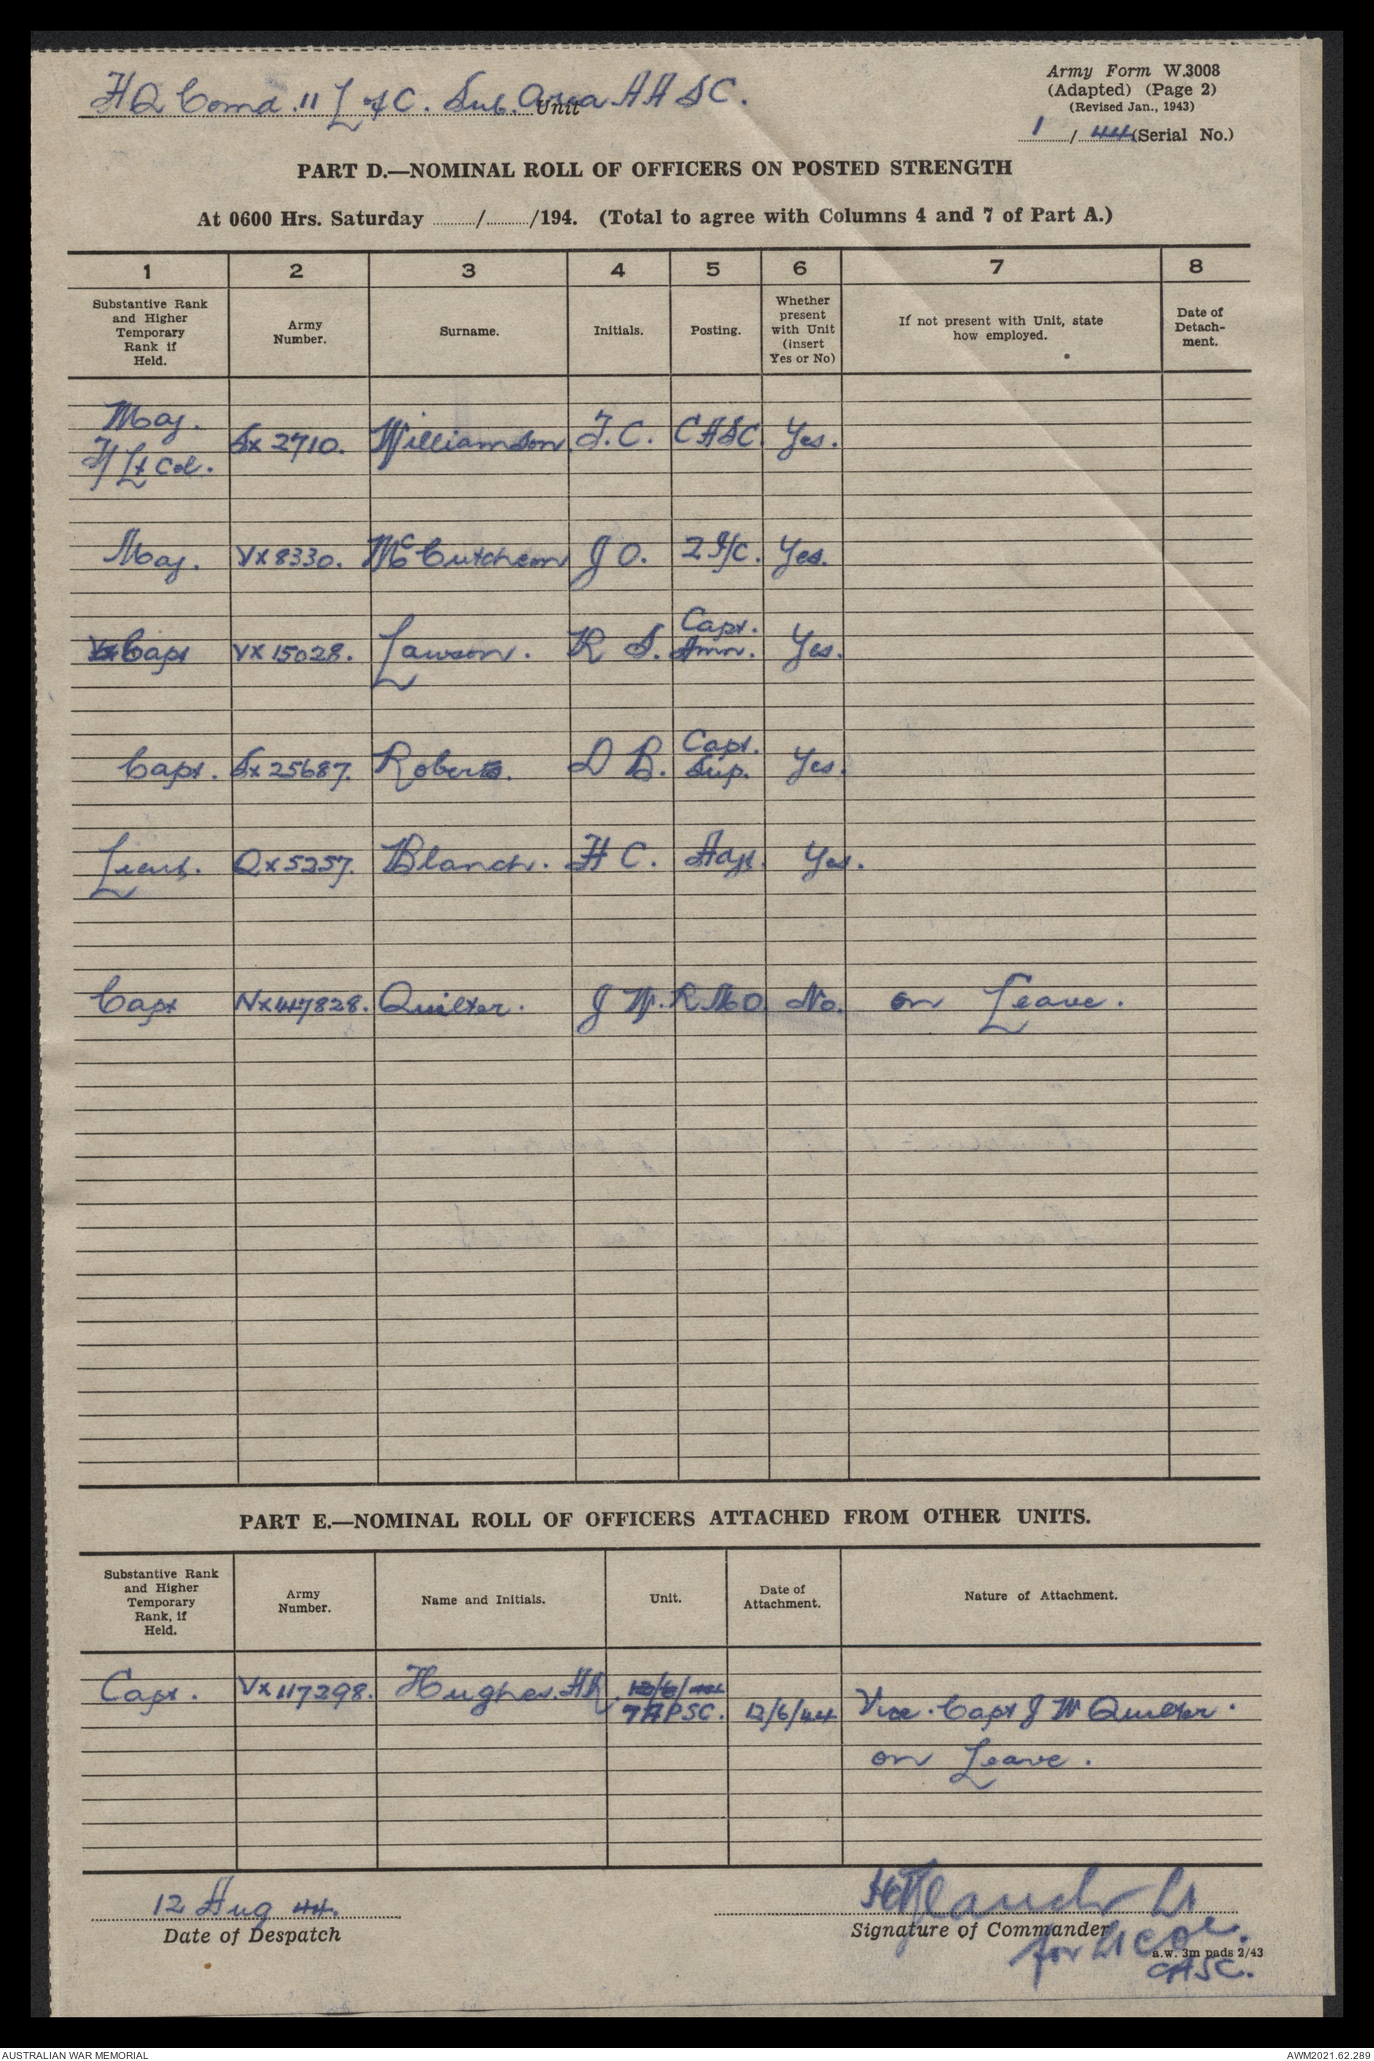 HQ Comd. 11 L of C. Sub. Area AASC.
Unit
Army Form W.3008
(Adapted) (Page 2)
(Revised Jan., 1943)
1 / 44 (Serial No.)
PART D.—NOMINAL ROLL OF OFFICERS ON POSTED STRENGTH
At 0600 Hrs. Saturday ........./........./194. (Total to agree with Columns 4 and 7 of Part A.)
1 2 3 4 5 6 7 8
Substantive Rank
and Higher
Temporary
Rank if
Held.
Army
Number.
Surname.
Initials.
Posting.
Whether
present
with Unit
(insert
Yes or No)
If not present with Unit, state
how employed.
Date of
Detach-
ment.
Maj.
T/Lt Col. Sx 2710. Williamson. F.C. CASC. Yes.
Maj. Vx 8330. McCutcheon J O. 2 I/C. Yes.
Capt Vx 15028. Lawson. R S. Capt. Amn. Yes.
Capt. Sx 25687. Roberts. D B. Capt. Sup. Yes.
Lieut. Qx 5257. Blanch. H C. Adjt. Yes.
Capt Nx 47828. Quilter. J W. R M O. No. on Leave.
PART E.—NOMINAL ROLL OF OFFICERS ATTACHED FROM OTHER UNITS.
Substantive Rank
and Higher
Temporary
Rank, if
Held.
Army
Number.
Name and Initials.
Unit.
Date of
Attachment.
Nature of Attachment.
Capt. Vx 117298. Hughes. A R. 12/6/44
7APSC. 12/6/44 Vice. Capt J W Quilter.
on Leave.
12 Aug 44.
Date of Despatch
HCBlanch Lt
Signature of Commander
for Lt Col.
a.w. 3m pads 2/43
CASC.
AUSTRALIAN WAR MEMORIAL
AWM2021.62.289